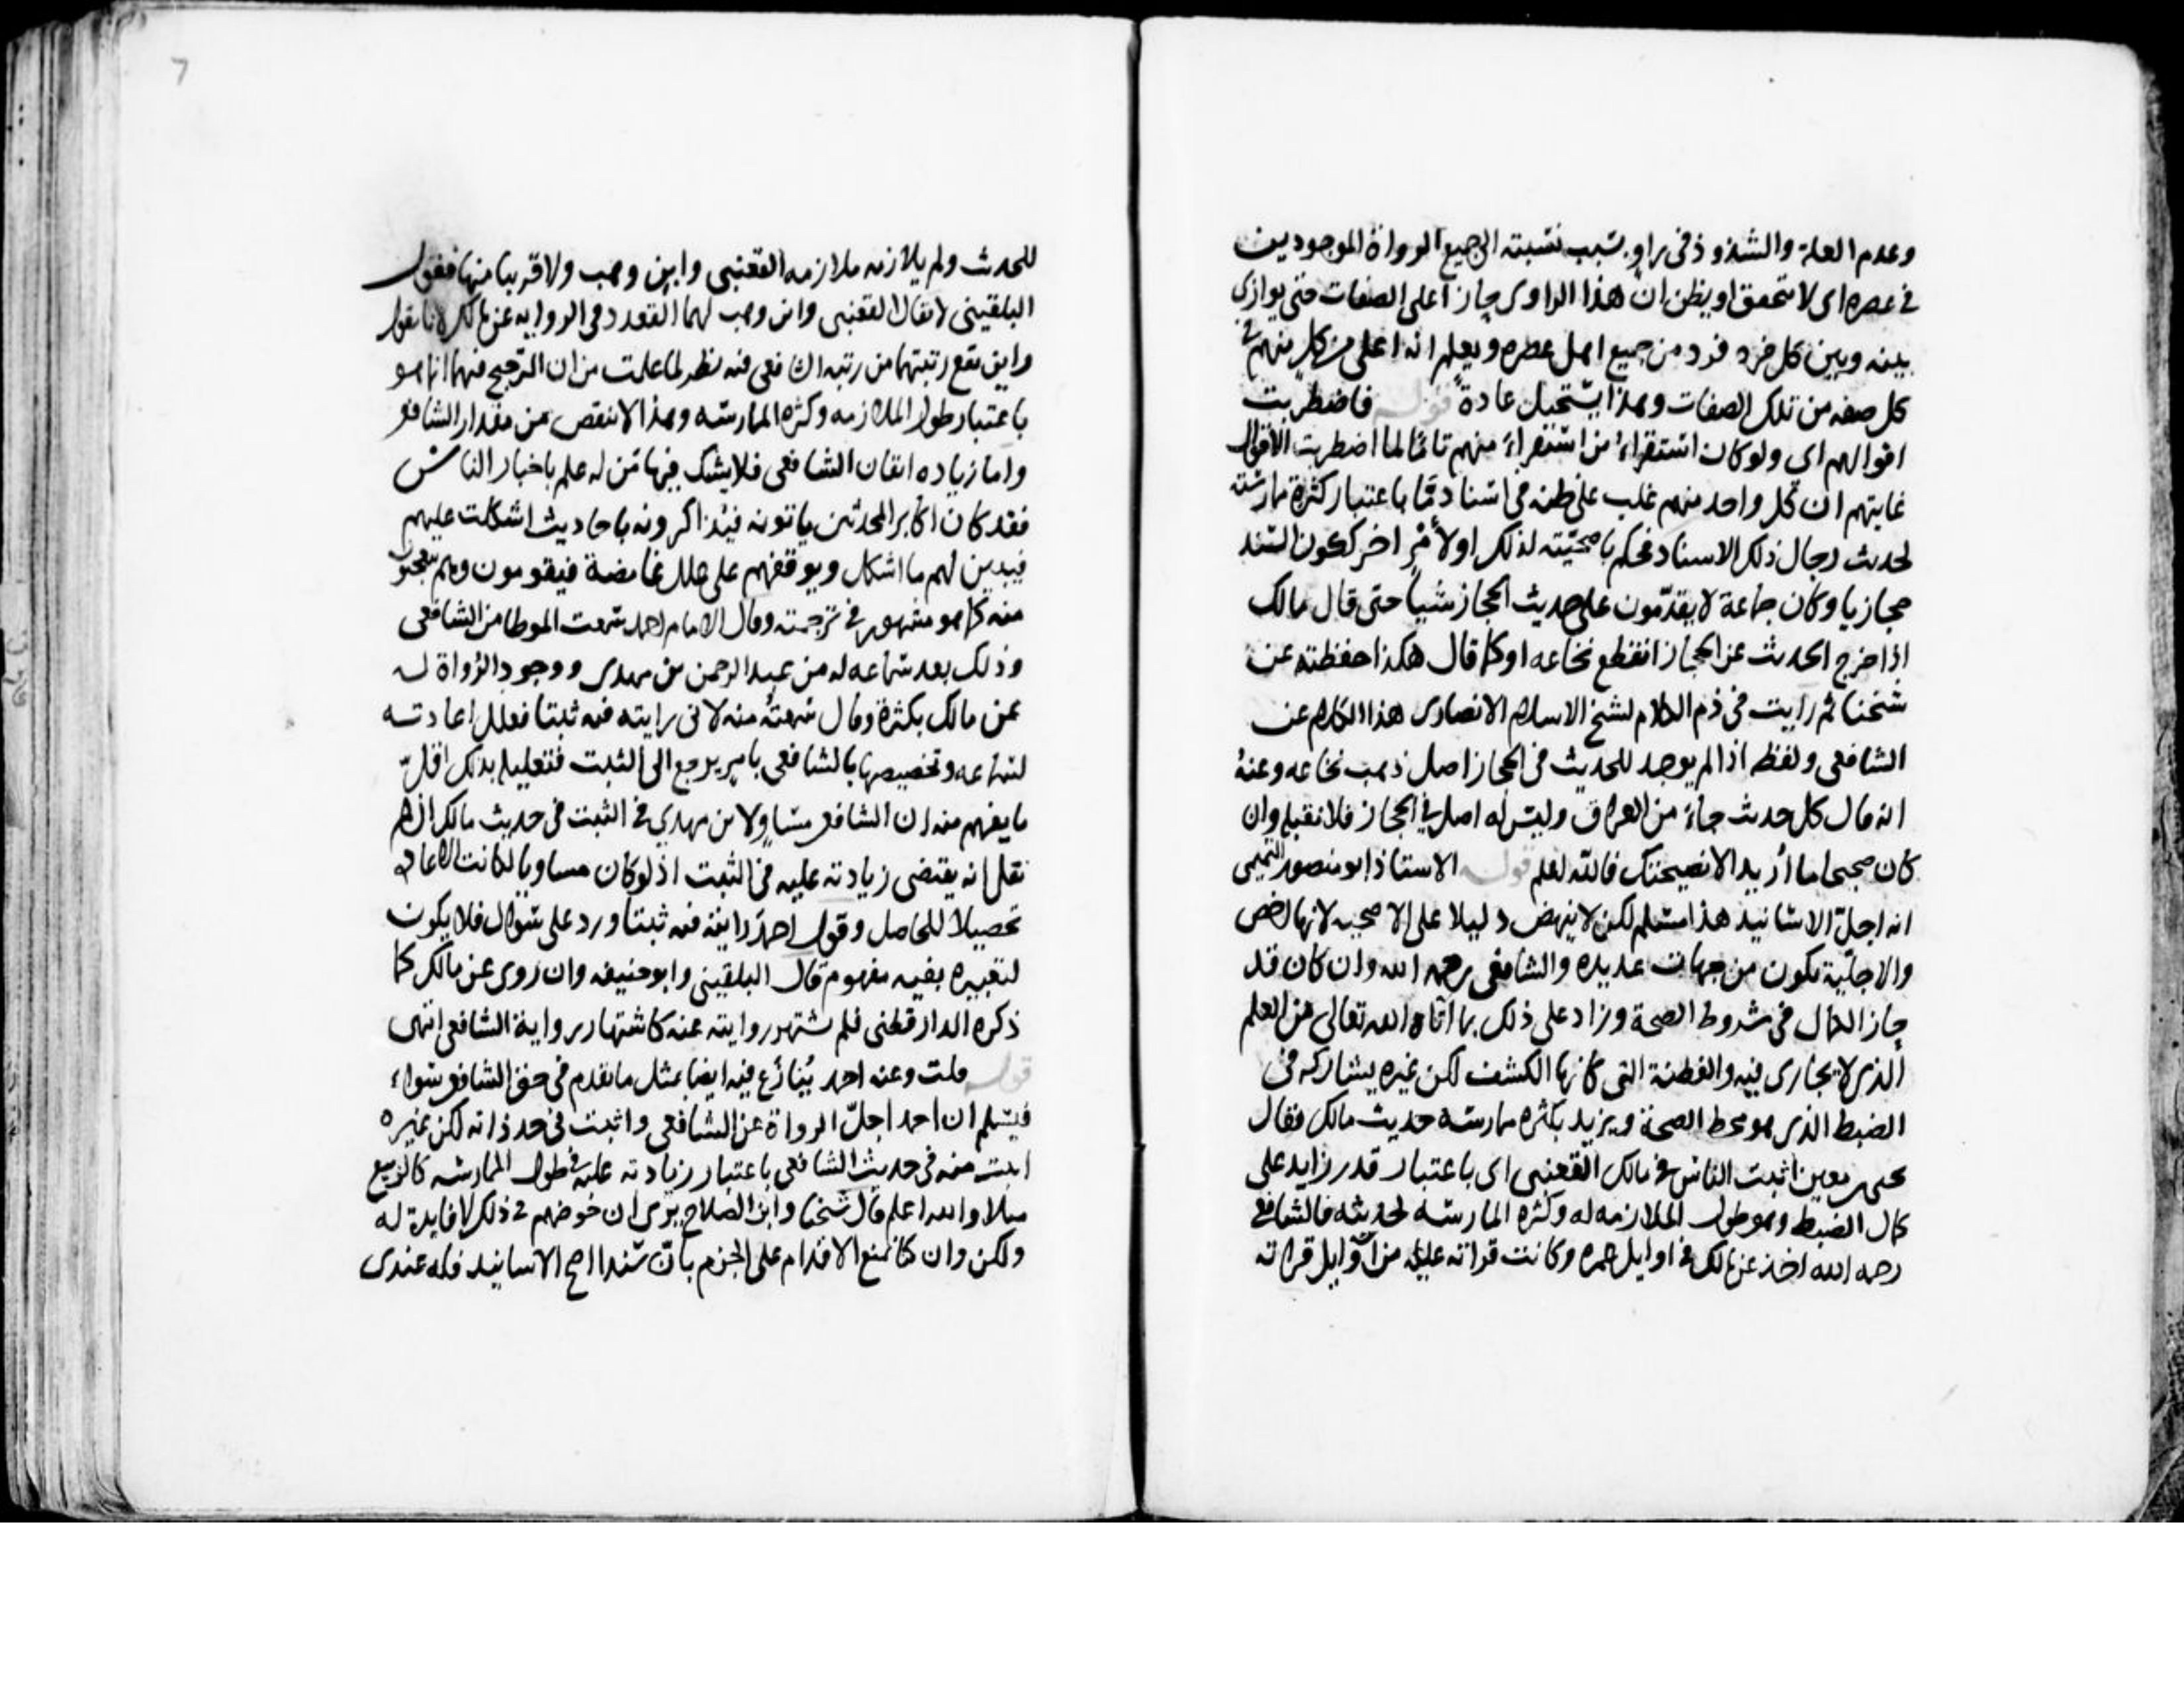 وعدم العلة والشذوذ في راوٍ بسبب نسبته الى جميع الرواة الموجودين
في عصره اى لا يتحقق او يظن ان هذا الراوى حاز اعلى الصفات حتى يوازى
بينه وبين كل فرد فرد من جميع اهل عصره ويعلم انه اعلى من كلٍ منهم في
كل صفه من تلك الصفات وهذا يستحيل عادةً قوله فاضطربت
اقوالهم اي ولو كان استقراءُ من استقراءَ منهم تامًا لما اضطربت الاقوال
غايتهم ان كل واحد منهم غلب على ظنه في اسناد مّا باعتبار كثرة ممارسته
لحديث رجال ذلك الاسناد فحكم باصحيّته لذلك او لأمْرٍ اخر ككون السند
حجازيا وكان جماعة لا يقدّمون على حديث الحجاز شيأ حتى قال مالك
اذا خرج الحديث عن الحجاز انقطع نخاعه او كما قال هكذا حفظته عن
شيخنا ثم رايت في ذم الكلام لشيخ الاسلام الانصارى هذا الكلام عن
الشافعى ولفظه اذا لم يوجد للحديث في الحجاز اصل ذهب نخاعه وعنهُ
انه قال كل حديث جاءَ من العراق وليس له اصل في الحجاز فلا تقبله وان
كان صحيحا ما أريد الا نصيحتك فالله اعلم قوله الاستاذ ابو منصور التميمى
انه اجلّ الاسانيد هذا مسلم لكن لا ينهض دليلا على الاصحيه لانها اخص
والاجلّية تكون من جهات عديده والشافعى رحمه الله وان كان قد
حاز الكمال في شروط الصحة وزاد على ذلك بما اتاه الله تعالى من العلم
الذى لا يجارى فيه والفطنة التى كانها الكشف لكن غيره يشاركه في
الضبط الذى هو محط الصحة ويزيد بكثره ممارسته حديث مالك فقال
يحيى بن معين اثبت الناس في مالك القعنبى اى باعتبار قدر زايد على
كمال الضبط وهو طول الملازمه له وكثره الممارسه لحديثه فالشافعى
رحمه الله اخذ عن مالك في اوايل عمره وكانت قراته عليه من اوايل قراته
7
للحديث ولم يلازمه ملازمه القعنبى وابن وهب ولا قريبا منها فقول
البلقينى لا يقال القعنبى وابن وهب لهما القعدد في الروايه عن مالك لانا نقول
واين تقع رتبتهما من رتبه الشافعى فيه نظر لما علمت من ان الترجيح فيهما انما هو
باعتبار طول الملازمه وكثره الممارسه وهذا لا ينقص من مقدار الشافعى
واما زياده اتقان الشافعى فلا يشك فيها مَن له علم باخبار الناس
فقد كان اكابر المحدثين ياتونه فيُذاكرونه باحاديث اشكلت عليهم
فيبين لهم ما اشكل ويوقفهم على علل غامضة فيقومون وهم يتعجبون
منه كما هو مشهور في ترجمته وقال الامام احمد سمعت الموطا من الشافعى
وذلك بعد سماعه له من عبد الرحمن بن مهدى ووجود الرواة له
عن مالك بكثرة وقال سمعتُه منه لانى رايته فيه ثبتا فعلل اعادته
لسماعه وتخصيصها بالشافعى بامر يرجع الى الثبت فتعليله بذلك اقلّ
ما يفهم منه ان الشافعى مساوٍ لابن مهدي في الثبت في حديث مالك ان لم
نقل انه يقتضى زيادته عليه في الثبت اذ لو كان مساويا لكانت الاعاده
تحصيلا للحاصل وقول احمد رايته فيه ثبتا ورد على سؤال فلا يكون
لتعبيره بفيه مفهوم قال البلقينى وابو حنيفه وان روى عن مالك كما
ذكره الدارقطنى فلم يشتهر روايته عنه كاشتهار رواية الشافعى انتهى
قوله قلت وعنه احمد يُنازَع فيه ايضا بمثل ما تقدم في حق الشافعى سواء
فيسلم ان احمد اجلّ الرواة عن الشافعى واثبت في حد ذاته لكن غيره
اثبت منه في حديث الشافعى باعتبار زيادته عليه في طول الممارسه كالربيع
مثلا والله اعلم قال شيخنا وابن الصلاح يرى ان خوضهم في ذلك لا فايدة له
ولكن وان كنا نمنع الاقدام على الجزم بأن سندا اصح الاسانيد فله عندى